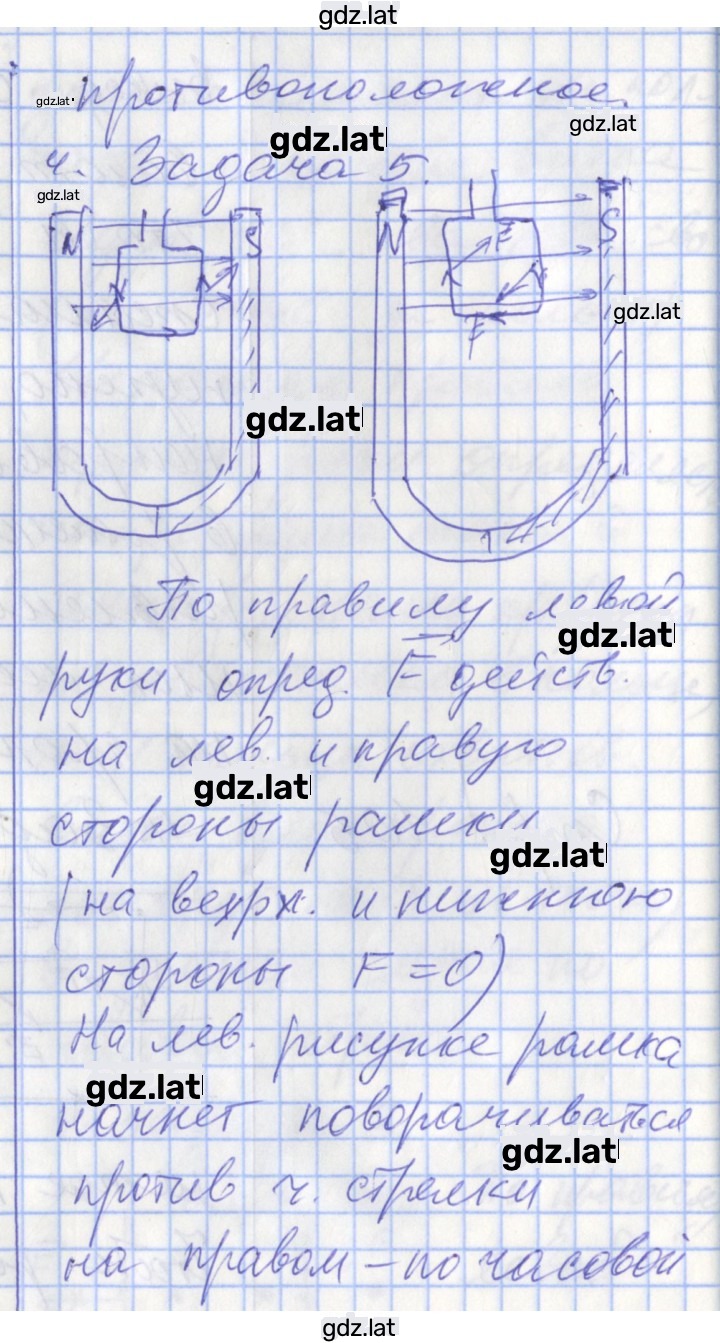 gdz.lat
противоположное.
gdz.lat
gdz.lat
gdz.lat
4. Задача 5.
gdz.lat
N S N F S
F
gdz.lat
gdz.lat
По правилу левой
gdz.lat
руки опред. F действ.
на лев. и правую
gdz.lat
стороны рамки
gdz.lat
(на верхн. и нижнюю
стороны F = 0)
На лев. рисунке рамка
gdz.lat
начнет поворачиваться
gdz.lat
против ч. стрелки
на правом – по часовой
gdz.lat